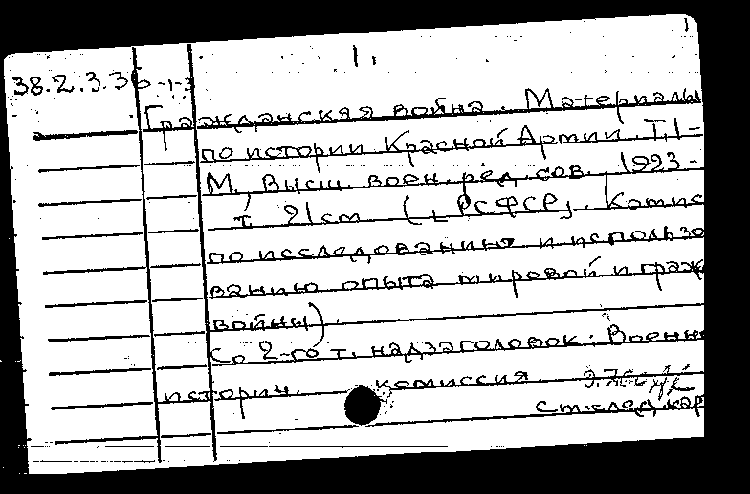 1
1.
38.2.3.36-1-3
Гражданская война. Материалы
по истории Красной Армии. Т.1-
М., Высш. воен. ред. сов., 1923-
т. 21см. ([РСФСР]. Комис
по исследованию и использо
ванию опыта мировой и граж
войны)
Со 2-го т. надзаголовок: Военн
историч. комиссия
см. след. кар